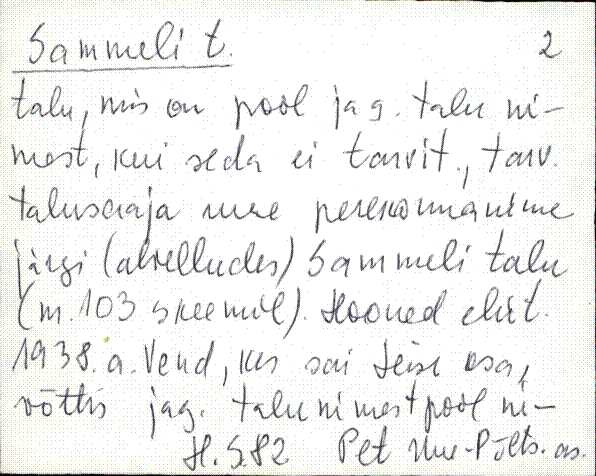 Sammeli t. 2
talu, mis on pool jag. talu ni-
mest, kui seda ei tarvit., tarv.
talusaaja uue perekonnanime
järgi (alselludes) Sammeli talu
(nr. 103 skeemil). Hooned ehit.
1938. a. Vend, kes sai teise osa,
võttis jag. talu nimest pool ni-
H. S. 82 Pet Uue-Põlts. as.